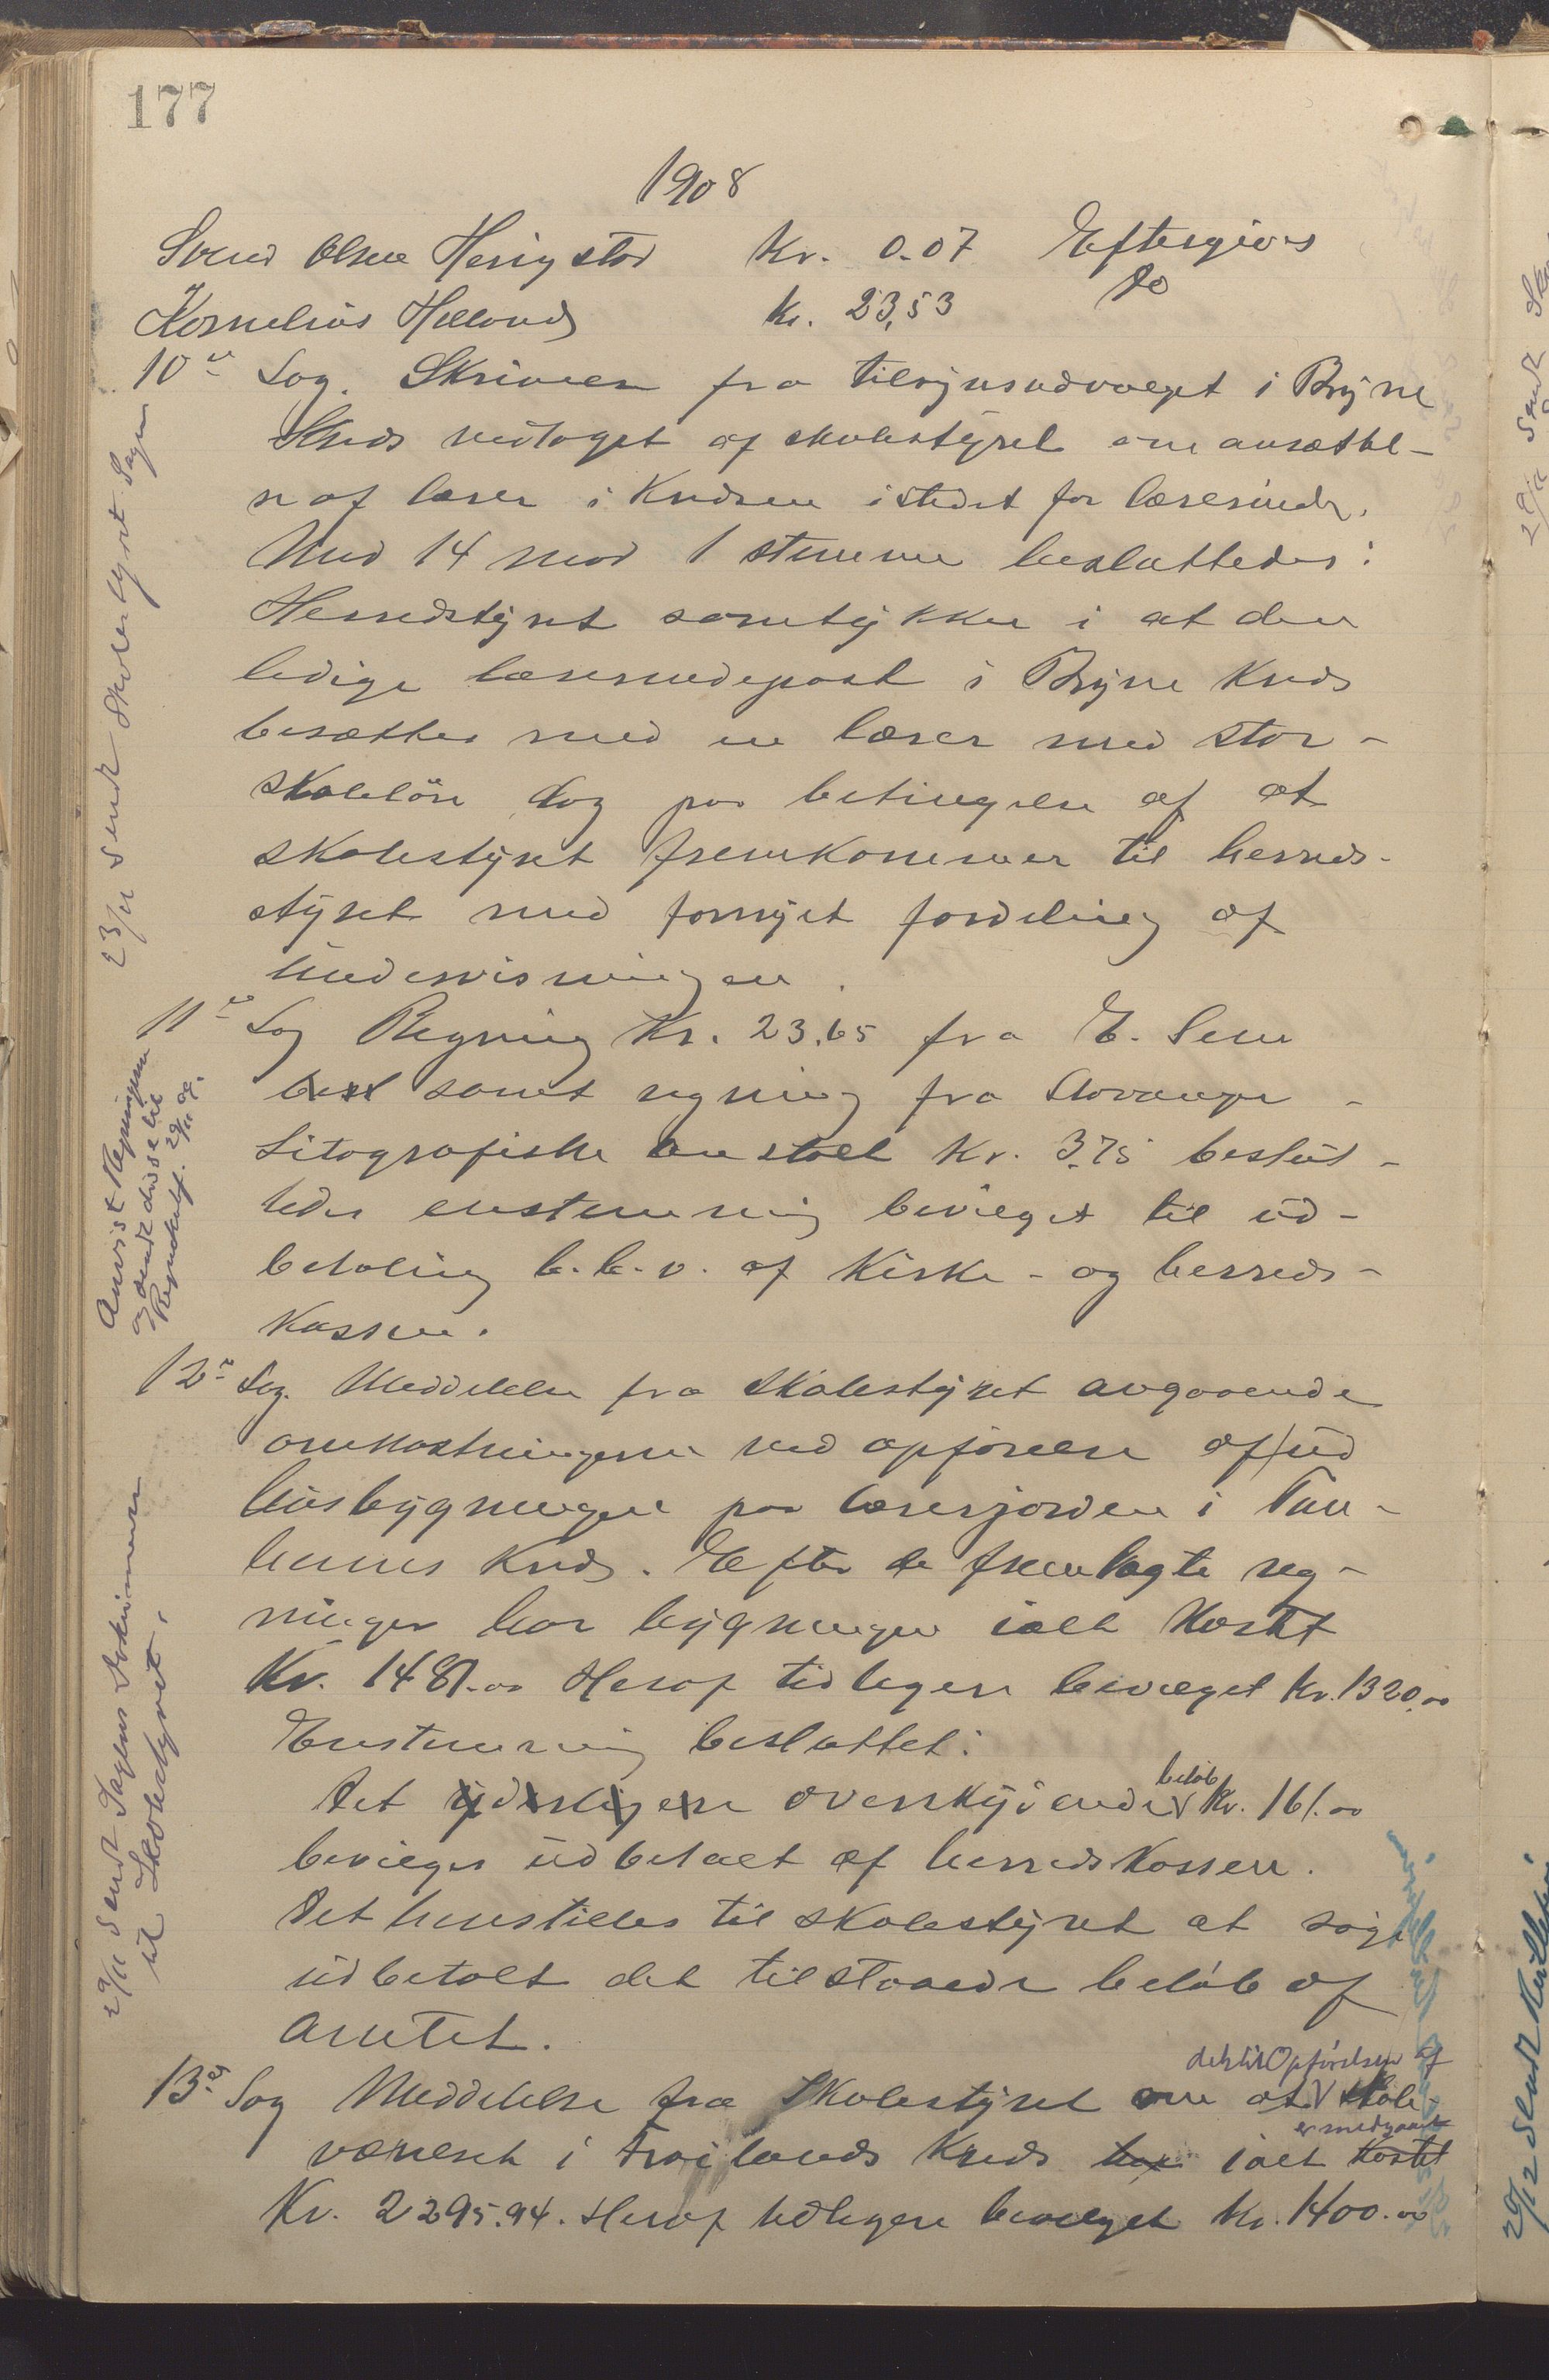 177
1908
Svend Olsen Herigstad Kr. 0.07 Eftergives
Kornelius Helland kr. 23,53 Do
10de Sag. Skrivelse fra tilsynsudvalget i Bryne
Kreds vedtaget af skolestyret om ansættel-
se af lærer i Kredsen istedet for lærerinde.
Med 14 mod 1 stemme besluttedes:
Herredstyret samtykker i at den
ledige lærerindepost i Bryne Kreds
besættes med en lærer med stor-
skoleløn dog paa betingelse af at
skolestyret fremkommer til herreds-
styret med fornyet fordeling af
undervisningen.
11te Sag Regning Kr. 23.65 fra E. Sem
samt regning fra Stavanger
Litografiske anstalt Kr. 3.75 beslut-
tedes enstemmig bevilget til ud-
betaling h.h.v. af Kirke- og herreds-
kassen.
12te Sag. Meddelelse fra Skolestyret angaaende
omkostningerne ved opförelse af ud
husbygningen paa lærerjorden i Tun-
heims Kreds. Efter de fremlagte reg-
ninger har bygningen ialt kostet
Kr. 1481.00 Heraf tidligere bevilget kr. 1320.00
Enstemmig besluttet:
Det yderligere overskydende beløb Kr. 161.00
bevilges udbetalt af herredskassen.
Det henstilles til skolestyret at søge
udbetalt det tilstaaede beløb af
Amtet.
13de Sag Meddelelse fra Skolestyret om at det til Opførelsen af skole
værelset i Frøilands Kreds har er medgaaet ialt kostet
Kr. 2295.94. Heraf tidligere bevilget Kr. 1400.00
23/11 sendt skolestyret Sagen
Anvist Regningerne
og sendt disse til
29/11 09.
29/11 sendt Sagens Dokumenter
til Skolestyret.
29/12 Sendt